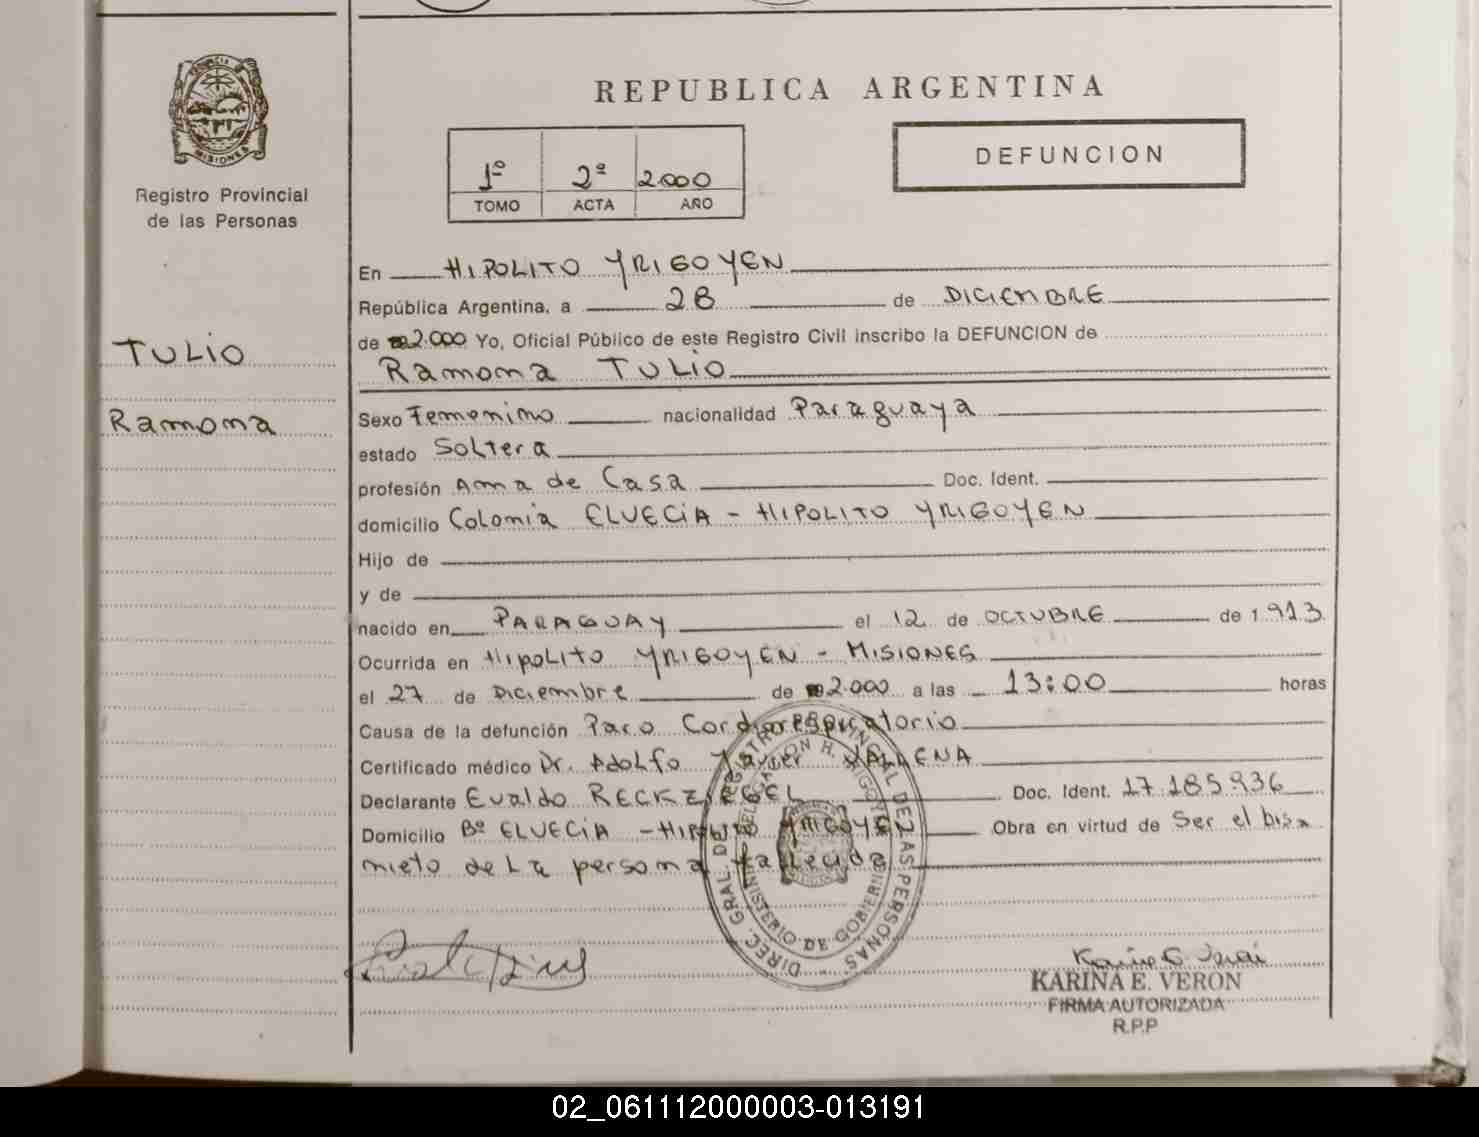 REPUBLICA ARGENTINA
PROVINCIA DE MISIONES
Registro Provincial
de las Personas
1º 2ª 2.000
TOMO ACTA AÑO
DEFUNCION
TULIO
Ramona
En HIPOLITO YRIGOYEN
República Argentina, a 28 de DICIEMBRE
de 2.000 Yo, Oficial Público de este Registro Civil inscribo la DEFUNCION de
Ramona TULIO
Sexo Femenino nacionalidad Paraguaya
estado Soltera
profesión Ama de Casa Doc. Ident.
domicilio Colonia ELVECIA - HIPOLITO YRIGOYEN
Hijo de
y de
nacido en PARAGUAY el 12 de OCTUBRE de 1.913
Ocurrida en HIPOLITO YRIGOYEN - MISIONES
el 27 de Diciembre de 2.000 a las 13:00 horas
Causa de la defunción Paro Cardiorespiratorio
Certificado médico Dr. Adolfo Javier
Declarante Evaldo RECKZIEGEL Doc. Ident. 17.185.936
Domicilio Bº ELVECIA - HIPOLITO YRIGOYEN Obra en virtud de Ser el bisa
nieto de La persona fallecida
DIREC. GRAL. DE REGISTRO PROVINCIAL DE LAS PERSONAS
DELEGACION H. YRIGOYEN
MINISTERIO DE GOBIERNO
KARINA E. VERON
FIRMA AUTORIZADA
R.P.P
02_061112000003-013191